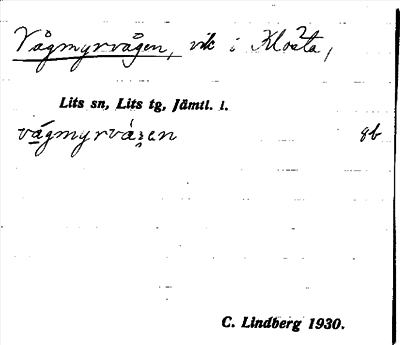 Vågmyrvågen, vik i Klösta,
Lits sn, Lits tg, Jämtl. l.
vágmyrvá̱ʒen gb
C. Lindberg 1930.